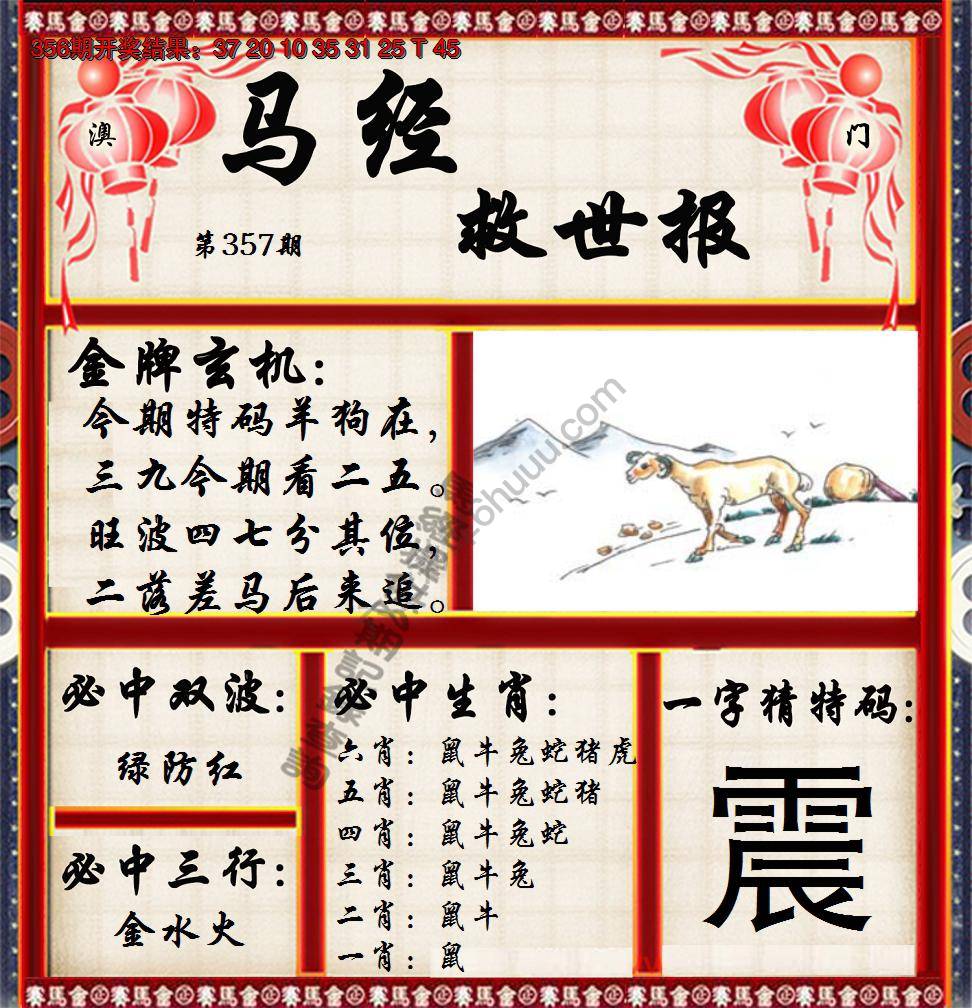 356期开奖结果：37 20 10 35 31 25 T 45
澳
门
马经
救世报
第357期
金牌玄机：
今期特码羊狗在，
三九今期看二五。
旺波四七分其位，
二落差马后来追。
必中双波：
绿防红
必中三行：
金水火
必中生肖：
六肖：鼠牛兔蛇猪虎
五肖：鼠牛兔蛇猪
四肖：鼠牛兔蛇
三肖：鼠牛兔
二肖：鼠牛
一肖：鼠
一字猜特码：
震